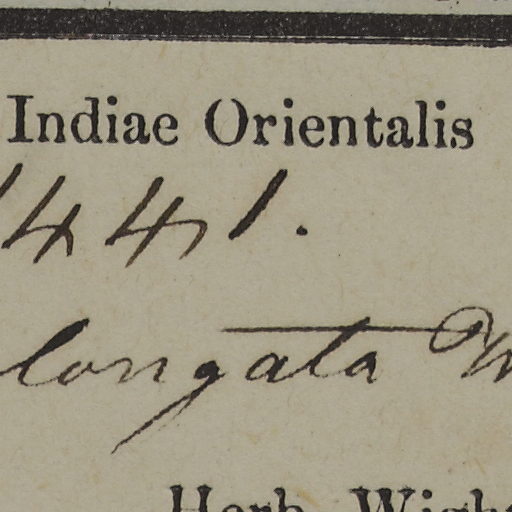 Indiae Orientalis
441.
longata W
Herb. Wigh